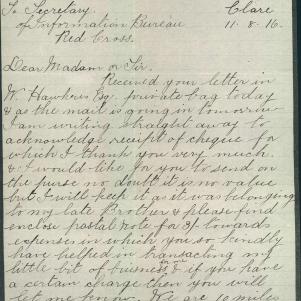 To Secretary. Clare
of Information Bureau 11.8.16.
Red Cross.
Dear Madam or Sir.
Received your letter in
W. Hawkers Esq. private bag today
& as the mail is going in tomorrow
I am writing straight away to
acknowledge receipt of cheque for
which I thank you very much.
& I would like for you to send on
the purse no doubt it is no value
but I will keep it as it was belonging
to my late Brother & please find
enclose postal note for 3/- towards
expenses in which you so kindly
have helped in transacting my
little bit of business & if you have
a certain charge then you will
let me know. We are 60 miles